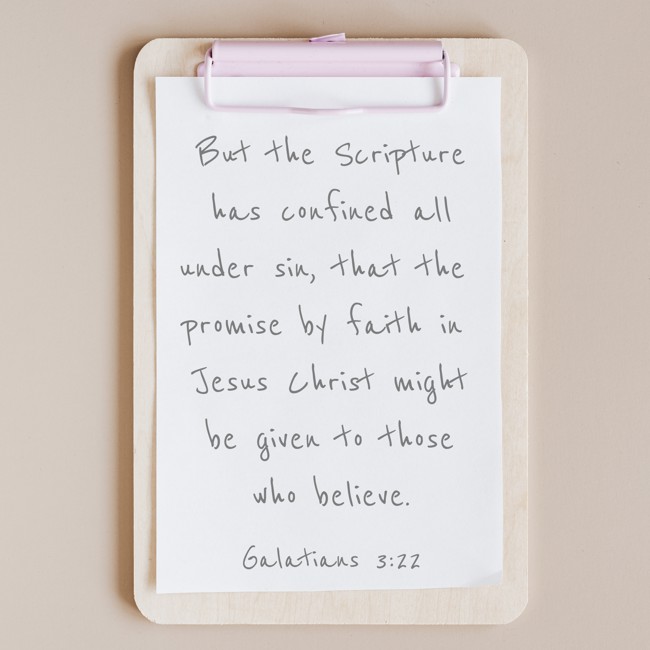 But the Scripture
has confined all
under sin, that the
promise by faith in
Jesus Christ might
be given to those
who believe.
Galatians 3:22